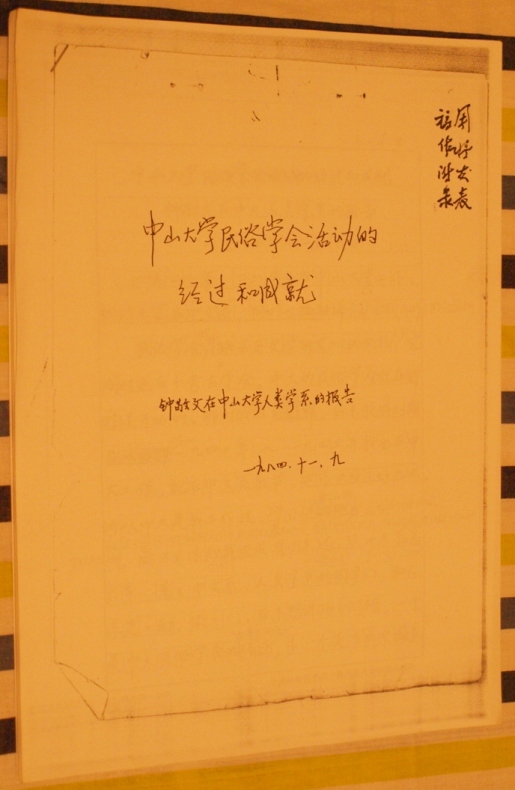 发表
作附录
中山大学民俗学会活动的
经过和成就
钟敬文在中山大学人类学系的报告
一九八四.十一.九